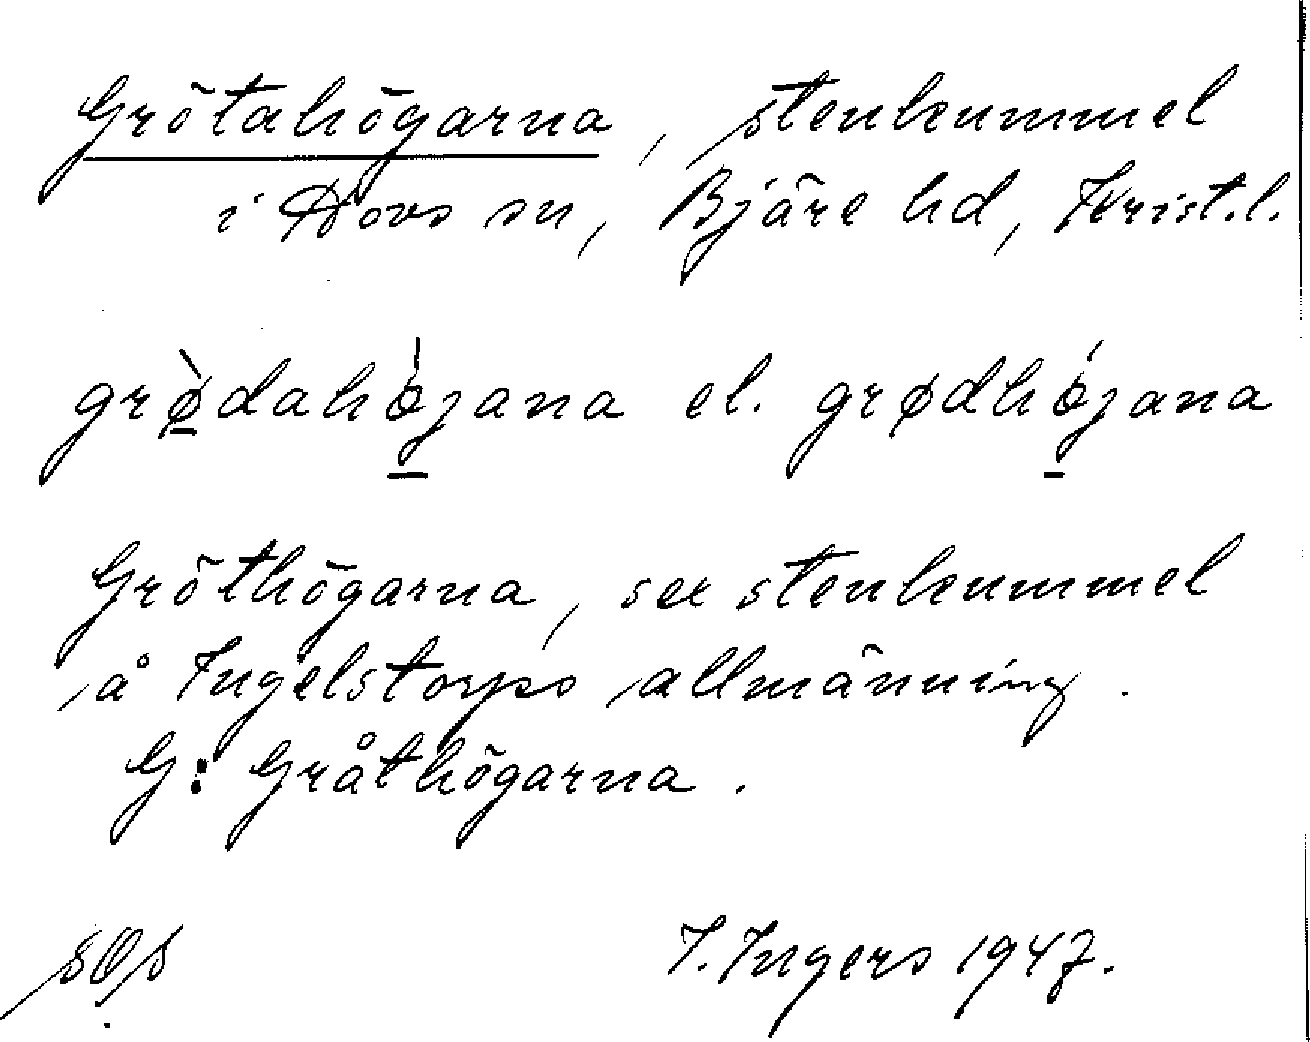 Grötahögarna, stenkummel
i Hovs sn, Bjäre hd, Krist.l.
grø̀dahǿjana el. grødhǿjana
Gröthögarna, sex stenkummel
å Ingelstorps allmänning.
G: Gråthögarna.
I. Ingers 1947.